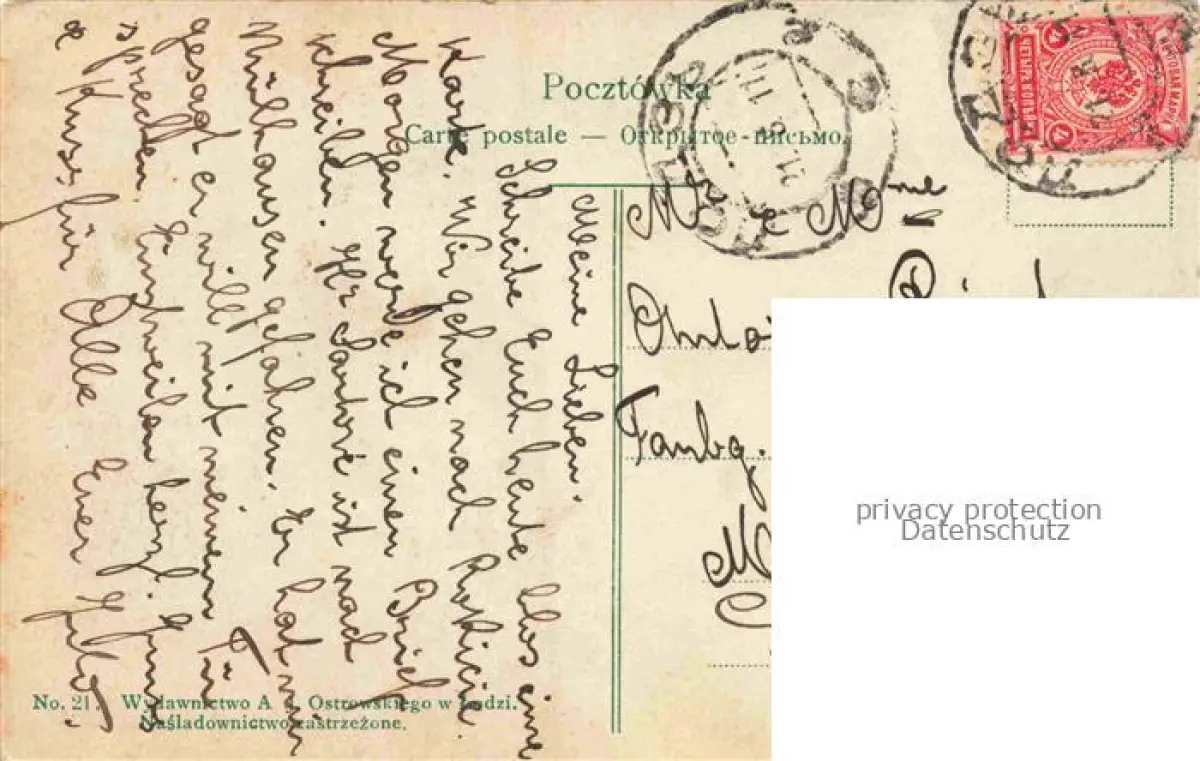 Pocztówka
Carte postale — Открытое письмо.
ЧЕТЫРЕ КОП.
4
Meine Lieben.
Schreibe Euch heute blos eine
Karte. Wir gehen nach Rokicie.
Morgen werde ich einen Brief
schreiben. Hr ist nach
Mülhausen gefahren. Er hat mir
gesagt er will mit meinem
sprechen. Einstweilen herzl.
& Kuss für Alle Euer
Mr & Mme
Faubg.
No. 21. Wydawnictwo A. J. Ostrowskiego w Łodzi.
Naśladownictwo zastrzeżone.
privacy protection
Datenschutz